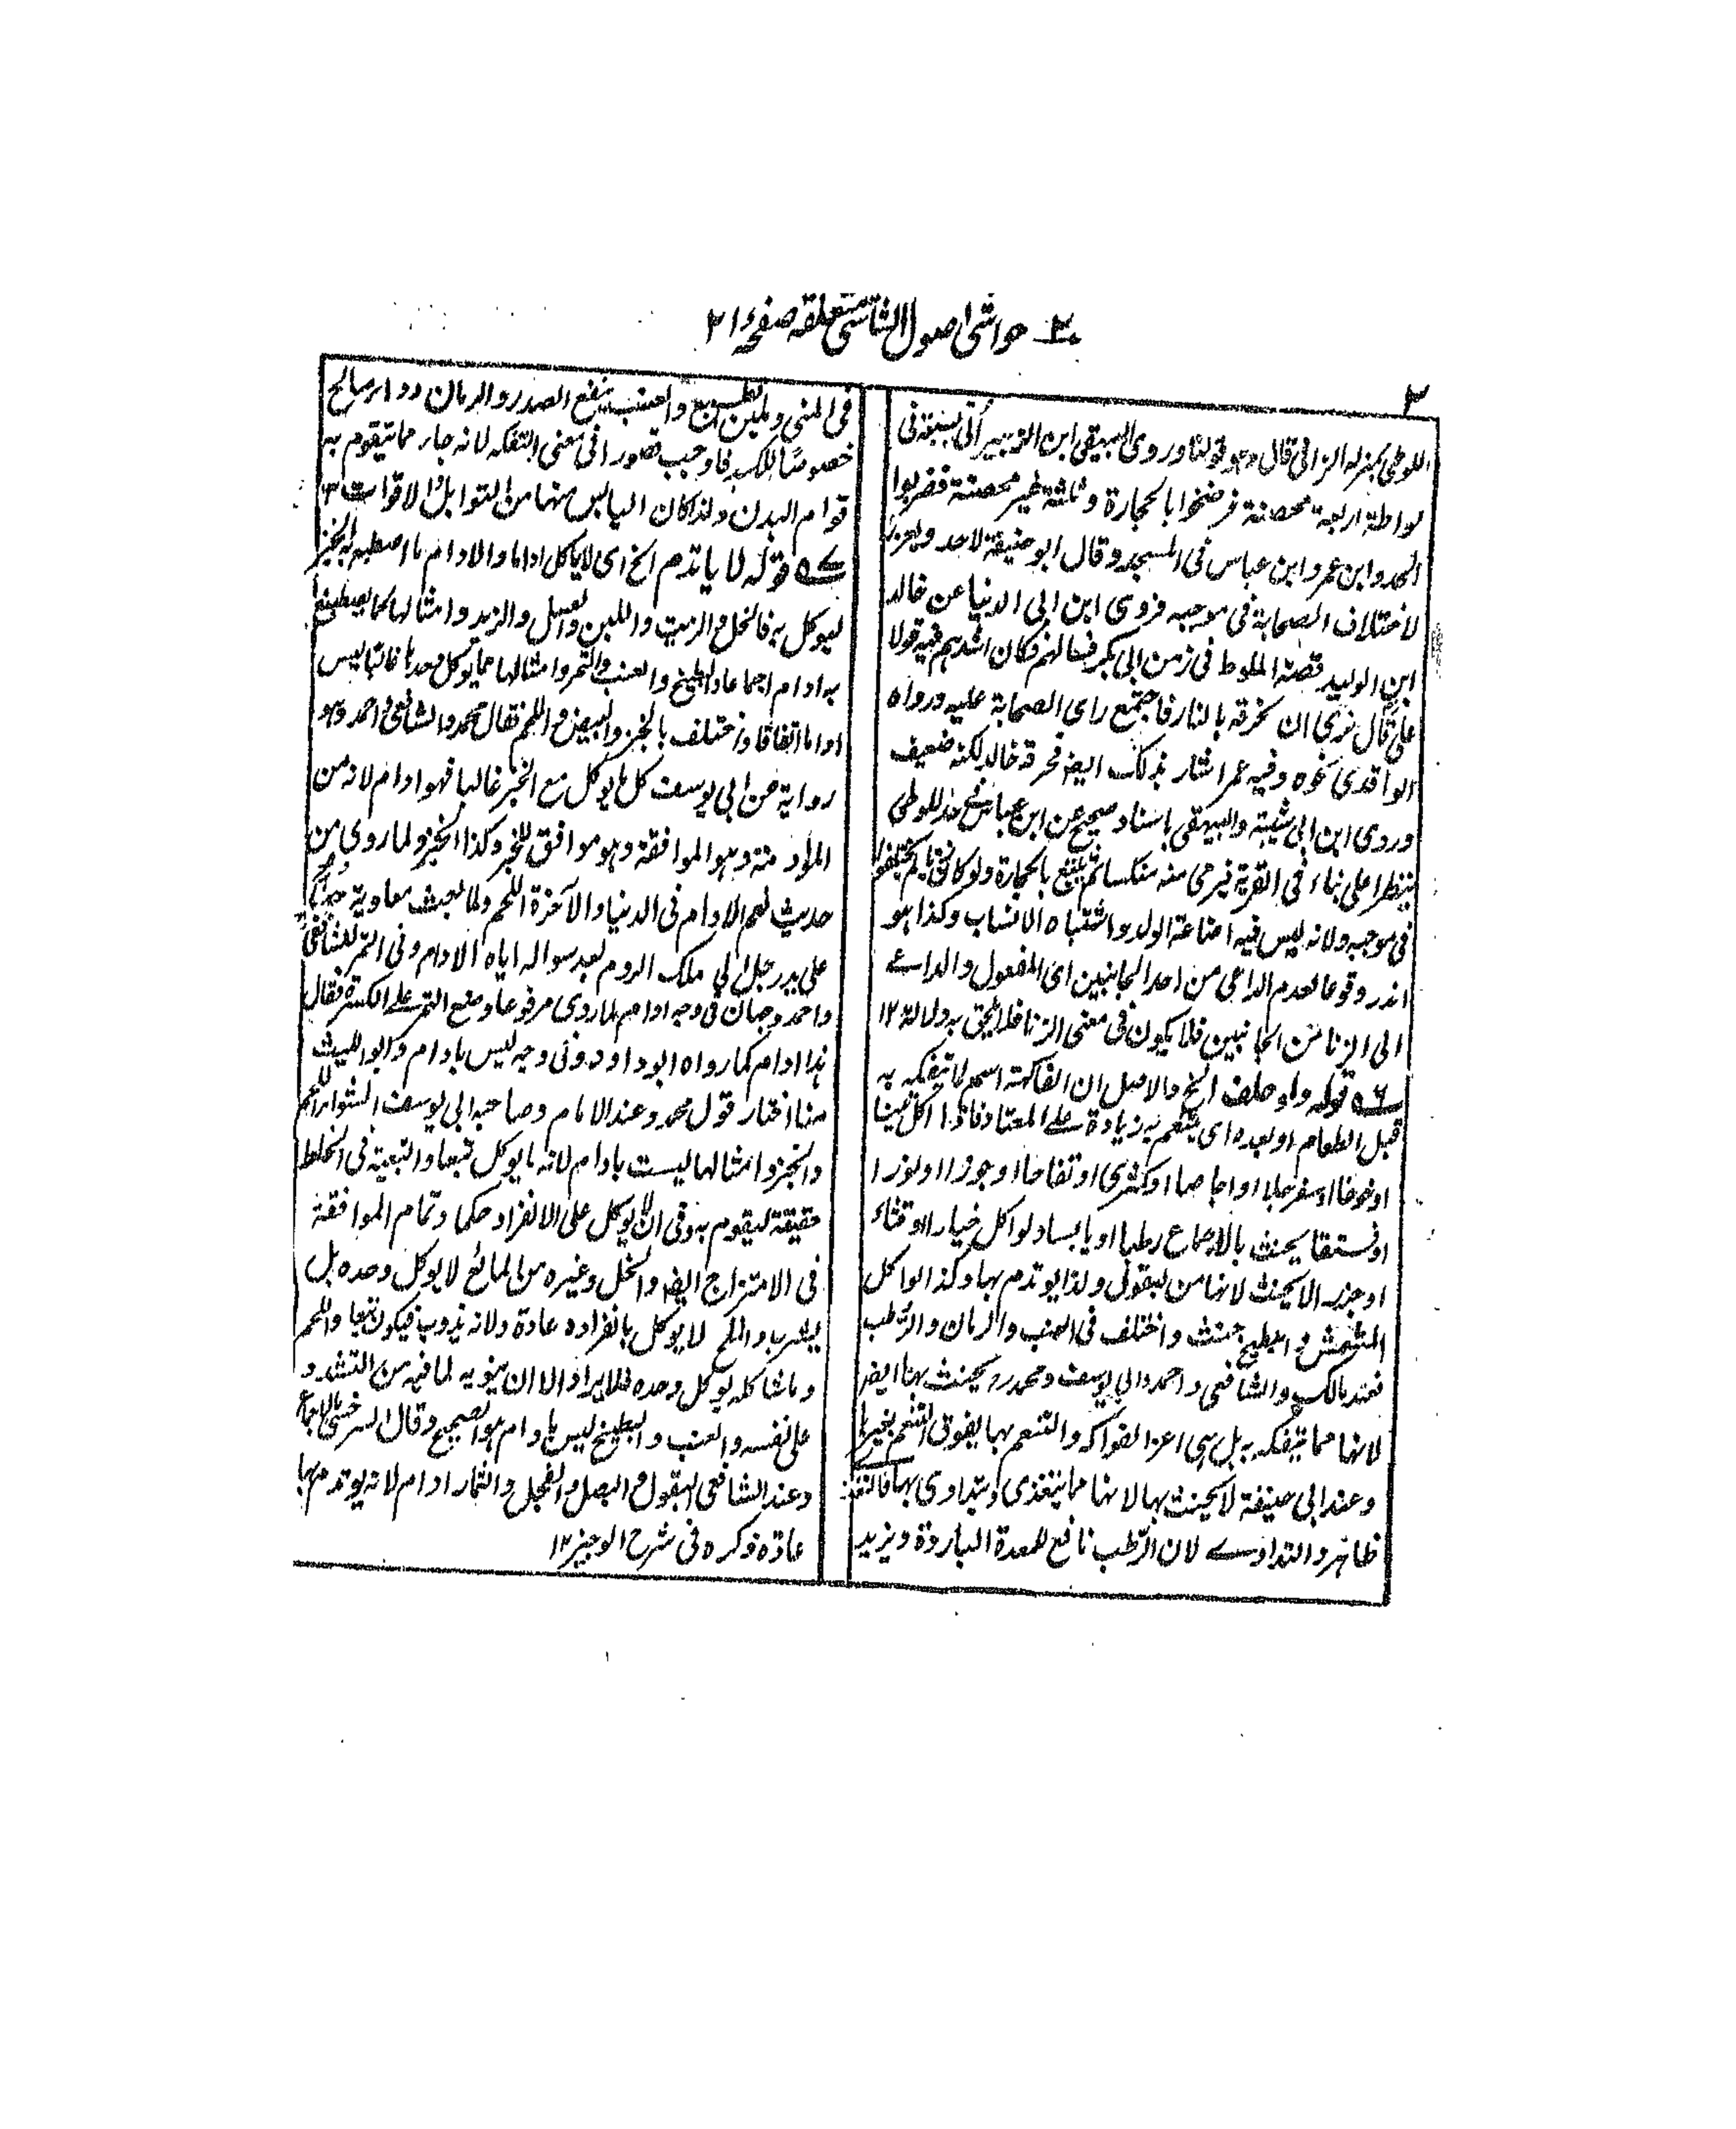 حواشی اصول الشاشی متعلقہ صفحہ ۲۱
۳
اللوطی بمنزلہ الزانی قال وہو قولنا وروی البیہقی ابن الزبیر اُتی بسبعۃ فی
لواطۃ اربعۃ محصنۃ فرضخوا بالحجارۃ وثلثۃ غیر محصنۃ فضربوا
الحد وابن عمر وابن عباس فی المسجد وقال ابو حنیفۃ لا حد ویعزر
لاختلاف الصحابۃ فی موجبہ فروی ابن ابی الدنیا عن خالد
ابن الولید قصۃ الملوط فی زمن ابی بکر فسالہم فکان اشدہم فیہ قولا
علی قال نری ان نحرقہ بالنار فاجتمع رای الصحابۃ علیہ ورواہ
الواقدی نحوہ وفیہ عمر اشار بذلک ایضا فحرقہ خالد لکنہ ضعیف
وروی ابن ابی شیبۃ والبیہقی باسناد صحیح عن ابن عباس حد اللوطی
ینظر اعلی بناء فی القریۃ فیرمی منہ منکسا ثم یتبع بالحجارۃ ولو کان زنا لم یختلفوا
فی موجبہ ولانہ لیس فیہ اضاعۃ الولد واشتباہ الانساب وکذا ہو
اندر وقوعا لعدم الداعی من احد الجانبین ای المفعول والداعے
الی الزنا من الجانبین فلا یکون فی معنی الزنا فلا یلحق بہ دلالۃ ۱۲
۶ قولہ ولو حلف الخ والاصل ان الفاکہۃ اسم لما یتفکہ بہ
قبل الطعام او بعدہ ای یتنعم بہ زیادۃ علے المعتاد فاذا اکل تینا
او خوخا او سفرجلا او اجاصا او کمثری او تفاحا او جوزا او لوزا
او فستقا یحنث بالاجماع رطبا او یابسا ولو اکل خیارا او قثاء
او جزر الا یحنث لانہا من البقول ولذا یوتدم بہا وکذا لو اکل
المشمش والبطیخ حنث واختلف فی العنب والرمان والرطب
فعند مالک والشافعی واحمد وابی یوسف ومحمد رح یحنث بہا ایضا
لانہا مما یتفکہ بہ بل ہی اعز الفواکہ والتنعم بہا یفوق التنعم بغیرہا
وعند ابی حنیفۃ لا یحنث بہا لانہا مما یتغذی ویتداوی بہا فالتغذ
ظاہر والتداوے لان الرطب نافع للمعدۃ الباردۃ ویزید
فی المنی ویلین الطبع والعنب ینفع الصدر والرمان دواء صالح
خصوصا للکبد فاوجب قصورا فی معنی التفکہ لانہ جار مما یتقوم بہ
قوام البدن ولذا کان الیابس منہا من التوابل والاقوات ۱۲
۷ قولہ لا یاتدم الخ ای لا یاکل اداما والادام ما اصطبغ بہ الخبز
لیوکل بہ فالخل والزیت واللبن والعسل والزبد وامثالہا مما یصطبغ
بہ ادام اجماعا والبطیخ والعنب والتمر وامثالہا مما یوکل وحدہا غالبا لیس
اداما اتفاقا واختلف بالجبن والبیض واللحم فقال محمد والشافعی واحمد وہو
روایۃ عن ابی یوسف کل ما یوکل مع الخبز غالبا فہو ادام لانہ من
الموادمۃ وہو الموافقۃ وہو موافق للخبز وکذا الجبن ولما روی من
حدیث نعم الادام فی الدنیا والآخرۃ اللحم ولما بعث معاویۃ جبنا
علی ید رجل الی ملک الروم بعد سوالہ ایاہ الادام وفی التمر للشافعی
واحمد وجہان فی وجہ ادام لما روی مرفوعا وضع التمر علے الکسرۃ فقال
ہذا ادام کما رواہ ابو داود وفی وجہ لیس بادام وابو اللیث
منا اختار قول محمد وعند الامام وصاحبہ ابی یوسف الشواء واللحم
والجبن وامثالہا لیست بادام لانہ ما یوکل تبعا والتبعیۃ فی الخلط
حقیقۃ لیقوم بہ وفی ان لا یوکل علی الانفراد حکما وتمام الموافقۃ
فی الامتزاج ایضا والخل وغیرہ من المائع لا یوکل وحدہ بل
یشرب والملح لا یوکل بانفرادہ عادۃ ولانہ یذوب فیکون تبعا واللحم
وما شاکلہ یوکل وحدہ فلا یراد الا ان ینویہ لما فیہ من التشدد
علی نفسہ والعنب والبطیخ لیس بادام ہو الصحیح وقال السرخسی بالاجماع
وعند الشافعی البقول والبصل والفجل والثمار ادام لانہ یوتدم بہا
عادۃ ذکرہ فی شرح الوجیز ۱۲